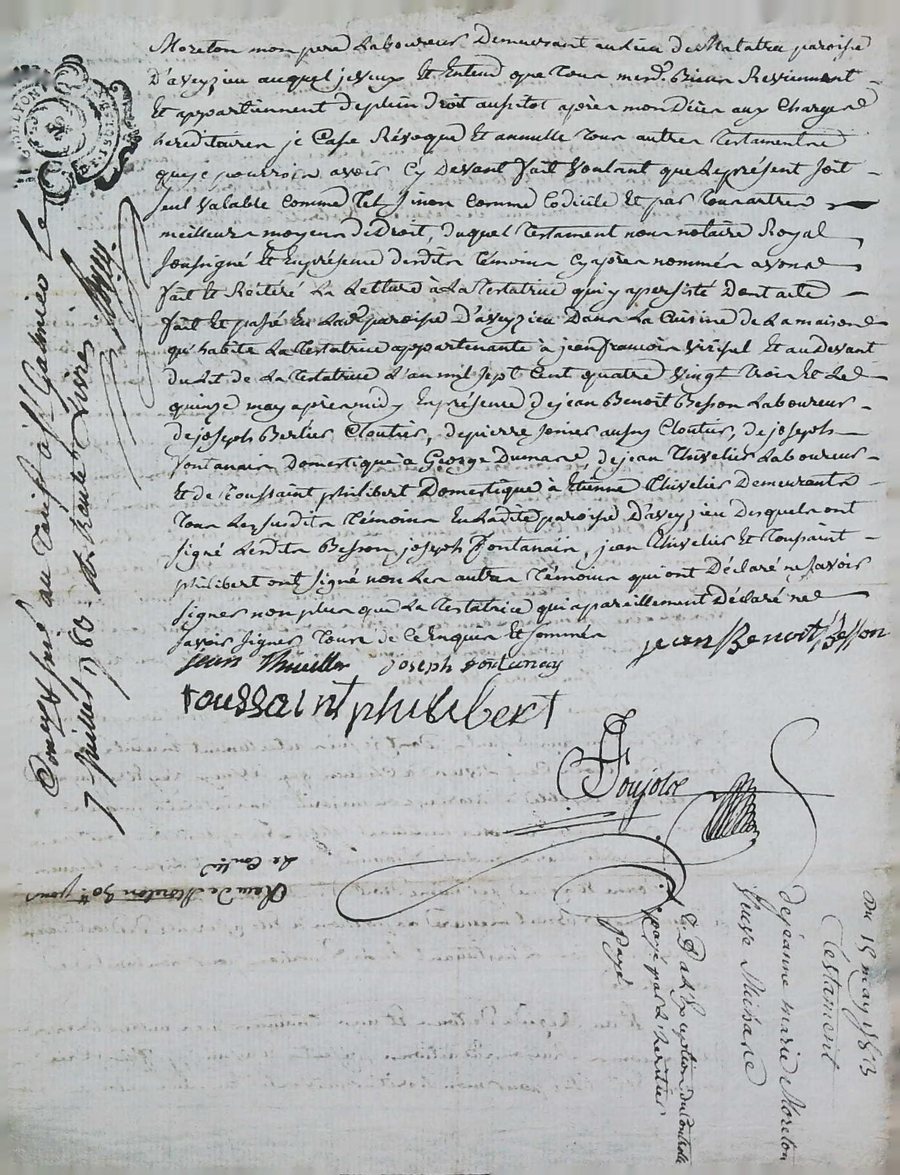 Moreton mon pere Laboureur Demeurant au Lieu de Matatru paroisse
D'aveyzieu auquel je veux Et Entend que tour mesd. Bienr Reviennent
Et appartiennent de plein Droit aussitot aprèr mon Décer aux Charger
hereditairer je Casse Révoque Et annulle tour autrer testamentr
que je pourroir avoir Cy Devant fait Voulant que Le présent soit
seul Valable Comme Tel sinon Comme Codicile Et par tour autrer
meilleurr moyenr de Droit, duquel testament nour notaire Royal
soussigné Et En présence derditr témoinr Cy aprèr nommér avonr
fait Et Réitéré La Lecture à La testatrice qui y a persisté Dont acte
fait Et passé En Lad. paroisse D'aveyzieu Danr La Cuisine de La maison
qu'habite La testatrice appartenante à jean françoir Viricel Et au Devant
du Lit de La testatrice L'an mil sept Cent quatre Vingt troir Et Le
quinze may aprèr midy En présence de jean Benoit Besson Laboureur
de joseph Berlier Cloutier, de pierre aussy Cloutier, de joseph
fontanair Domestique à George Dumare, de jean thivelier Laboureur
Et de toussaint philibert Domestique à Etienne thivelier Demeurantr
tour Ler susditr témoinr En Ladite paroisse D'aveyzieu Desquelr ont
signé Lerditr Besson joseph fontanair, jean thivelier Et toussaint
philibert ont signé non Ler autrer témoinr qui ont Déclaré ne savoir
signer non plus que La testatrice qui a pareillement Déclaré ne
savoir signer tour de Ce Enquir Et sommér
jean thivellier joseph fontanay jean Benoit Besson
toussaint philibert
Poujolr
Du 15 may 1783
Testament
de jeanne marie Moreton
payé par L'heritier
Payé
7 juillet 1783